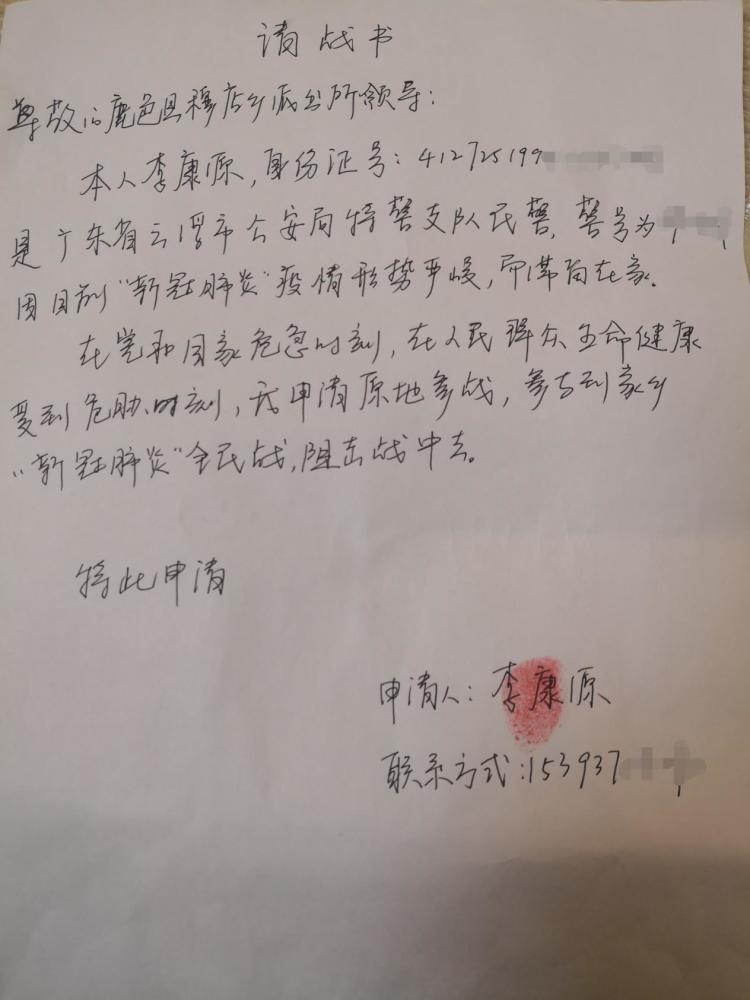 请战书
尊敬的鹿邑县穆店乡派出所领导：
本人李康源，身份证号：412725199
是广东省云浮市公安局特警支队民警，警号为
因目前“新冠肺炎”疫情形势严峻，即滞留在家。
在党和国家危急时刻，在人民群众生命健康
受到危胁时刻，我申请原地参战，参与到家乡
“新冠肺炎”全民战，阻击战中去。
特此申请
申请人：李康源
联系方式：153937